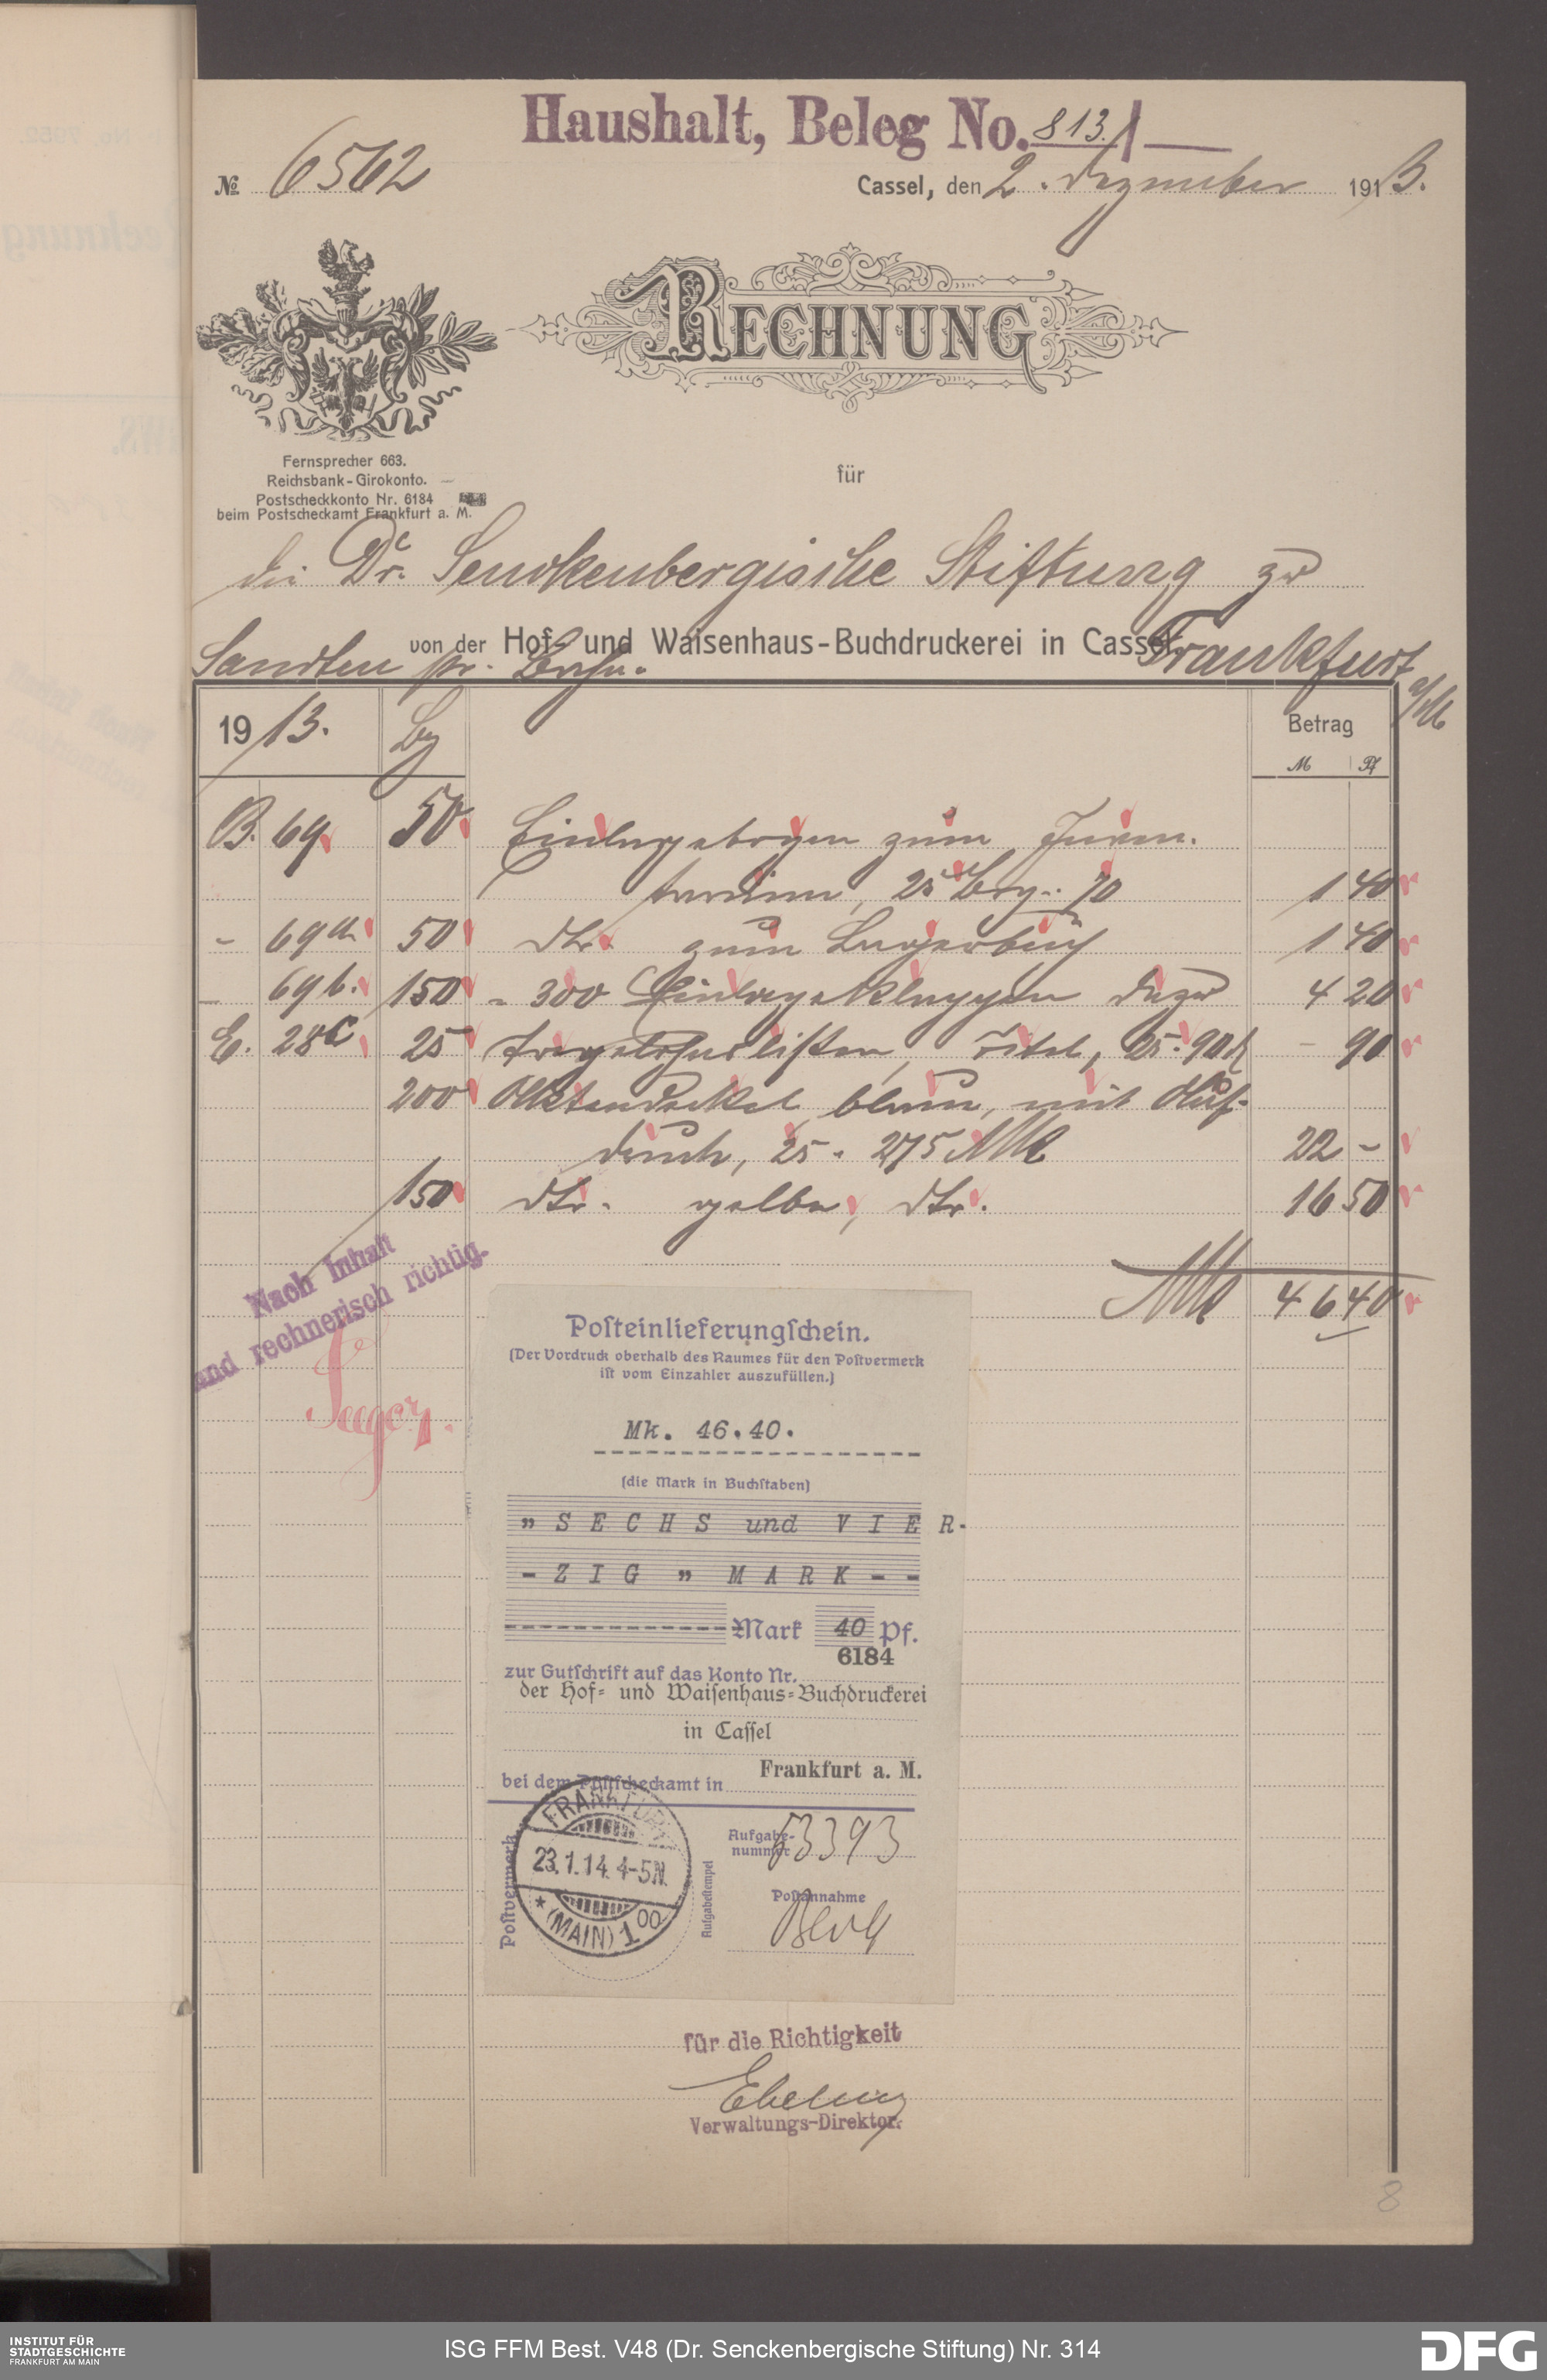 Haushalt, Beleg No. 813.
№ 6562
Cassel, den 2. Dezember 1913.
RECHNUNG
Fernsprecher 663.
Reichsbank-Girokonto.
Postscheckkonto Nr. 6184
beim Postscheckamt Frankfurt a. M.
für
die Dr. Senckenbergische Stiftung zu
von der Hof- und Waisenhaus-Buchdruckerei in Cassel.
Frankfurt a/M
Sandten pr.
1913.
Betrag
M Pf
B. 69 50 Einlagebogen zum Inven-
tarium, 25 Bog. 70 1 40
- 69a 50 dto. zum Lagerbuch 1 40
- 69b. 150 = 300 Einlage dazu 4 20
E. 28c 25 Titel, 25 = 90 - 90
200 Aktendeckel, blau, mit Auf-
druck, 25 = 275 22 -
150 dto. gelbe, dto. 16 50
Mk 46 40
Nach Inhalt
und rechnerisch richtig.
Seeger.
Posteinlieferungschein.
(Der Vordruck oberhalb des Raumes für den Postvermerk
ist vom Einzahler auszufüllen.)
Mk. 46.40.
(die Mark in Buchstaben)
„ SECHS und VIER-
-ZIG „ MARK--
Mark 40 Pf.
6184
zur Gutschrift auf das Konto Nr.
der Hof- und Waisenhaus-Buchdruckerei
in Cassel
Frankfurt a. M.
bei dem Postscheckamt in
Postvermerk
FRANKFURT
23.1.14. 4-5N.
* (MAIN) 1 00
Aufgabestempel
Aufgabe-
nummer 53393
Postannahme
für die Richtigkeit
Ebeling
Verwaltungs-Direktor.
8
INSTITUT FÜR
STADTGESCHICHTE
FRANKFURT AM MAIN
ISG FFM Best. V48 (Dr. Senckenbergische Stiftung) Nr. 314
DFG